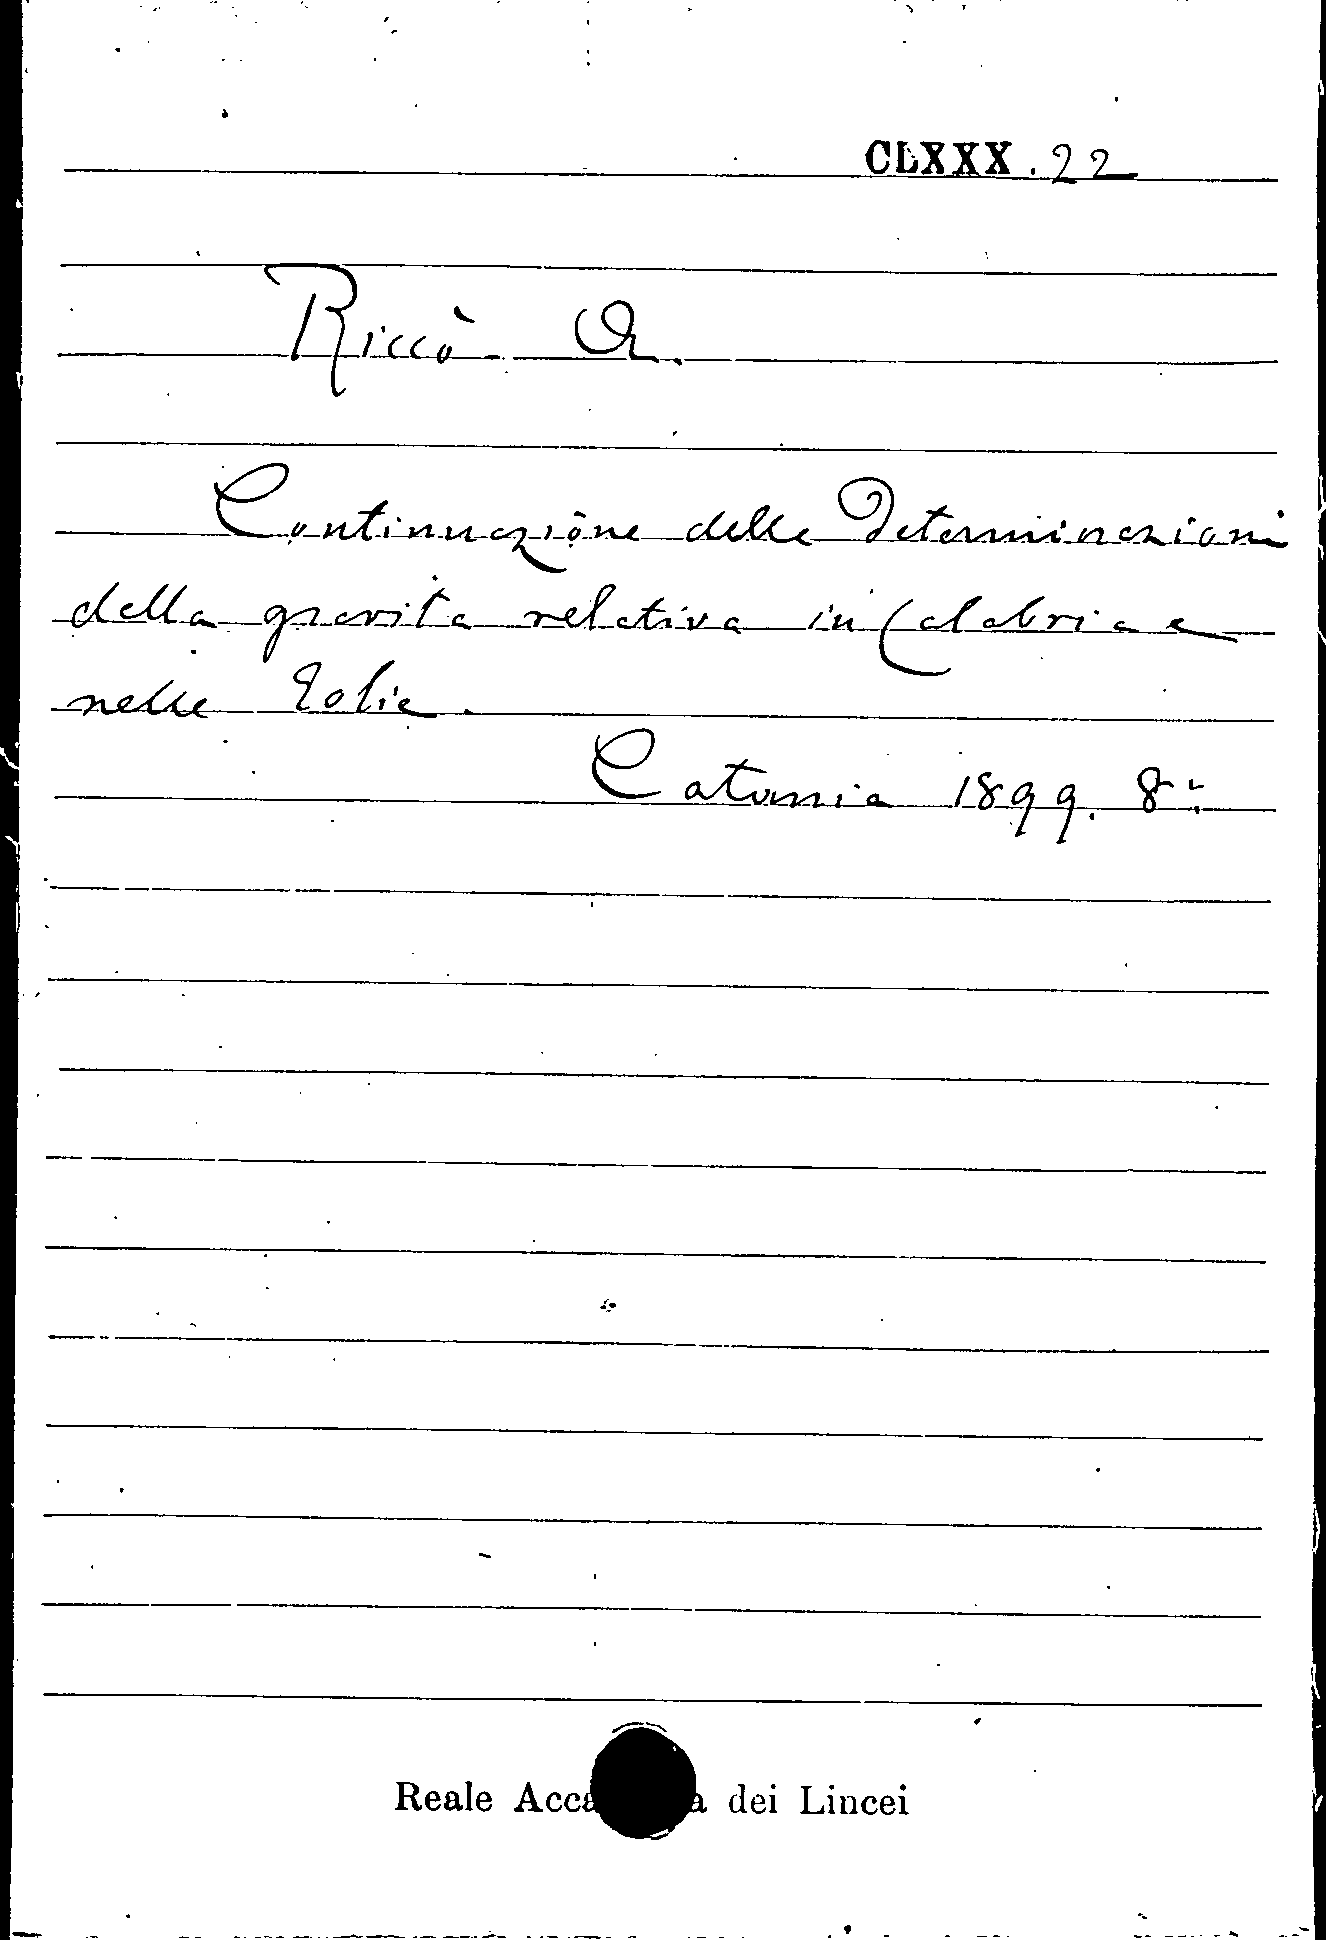 CLXXX. 22
Riccò A.
Continuazione delle Determinazioni
della gravità relativa in Calabria e
nelle Eolie.
Catania 1899. 8º
Reale dei Lincei